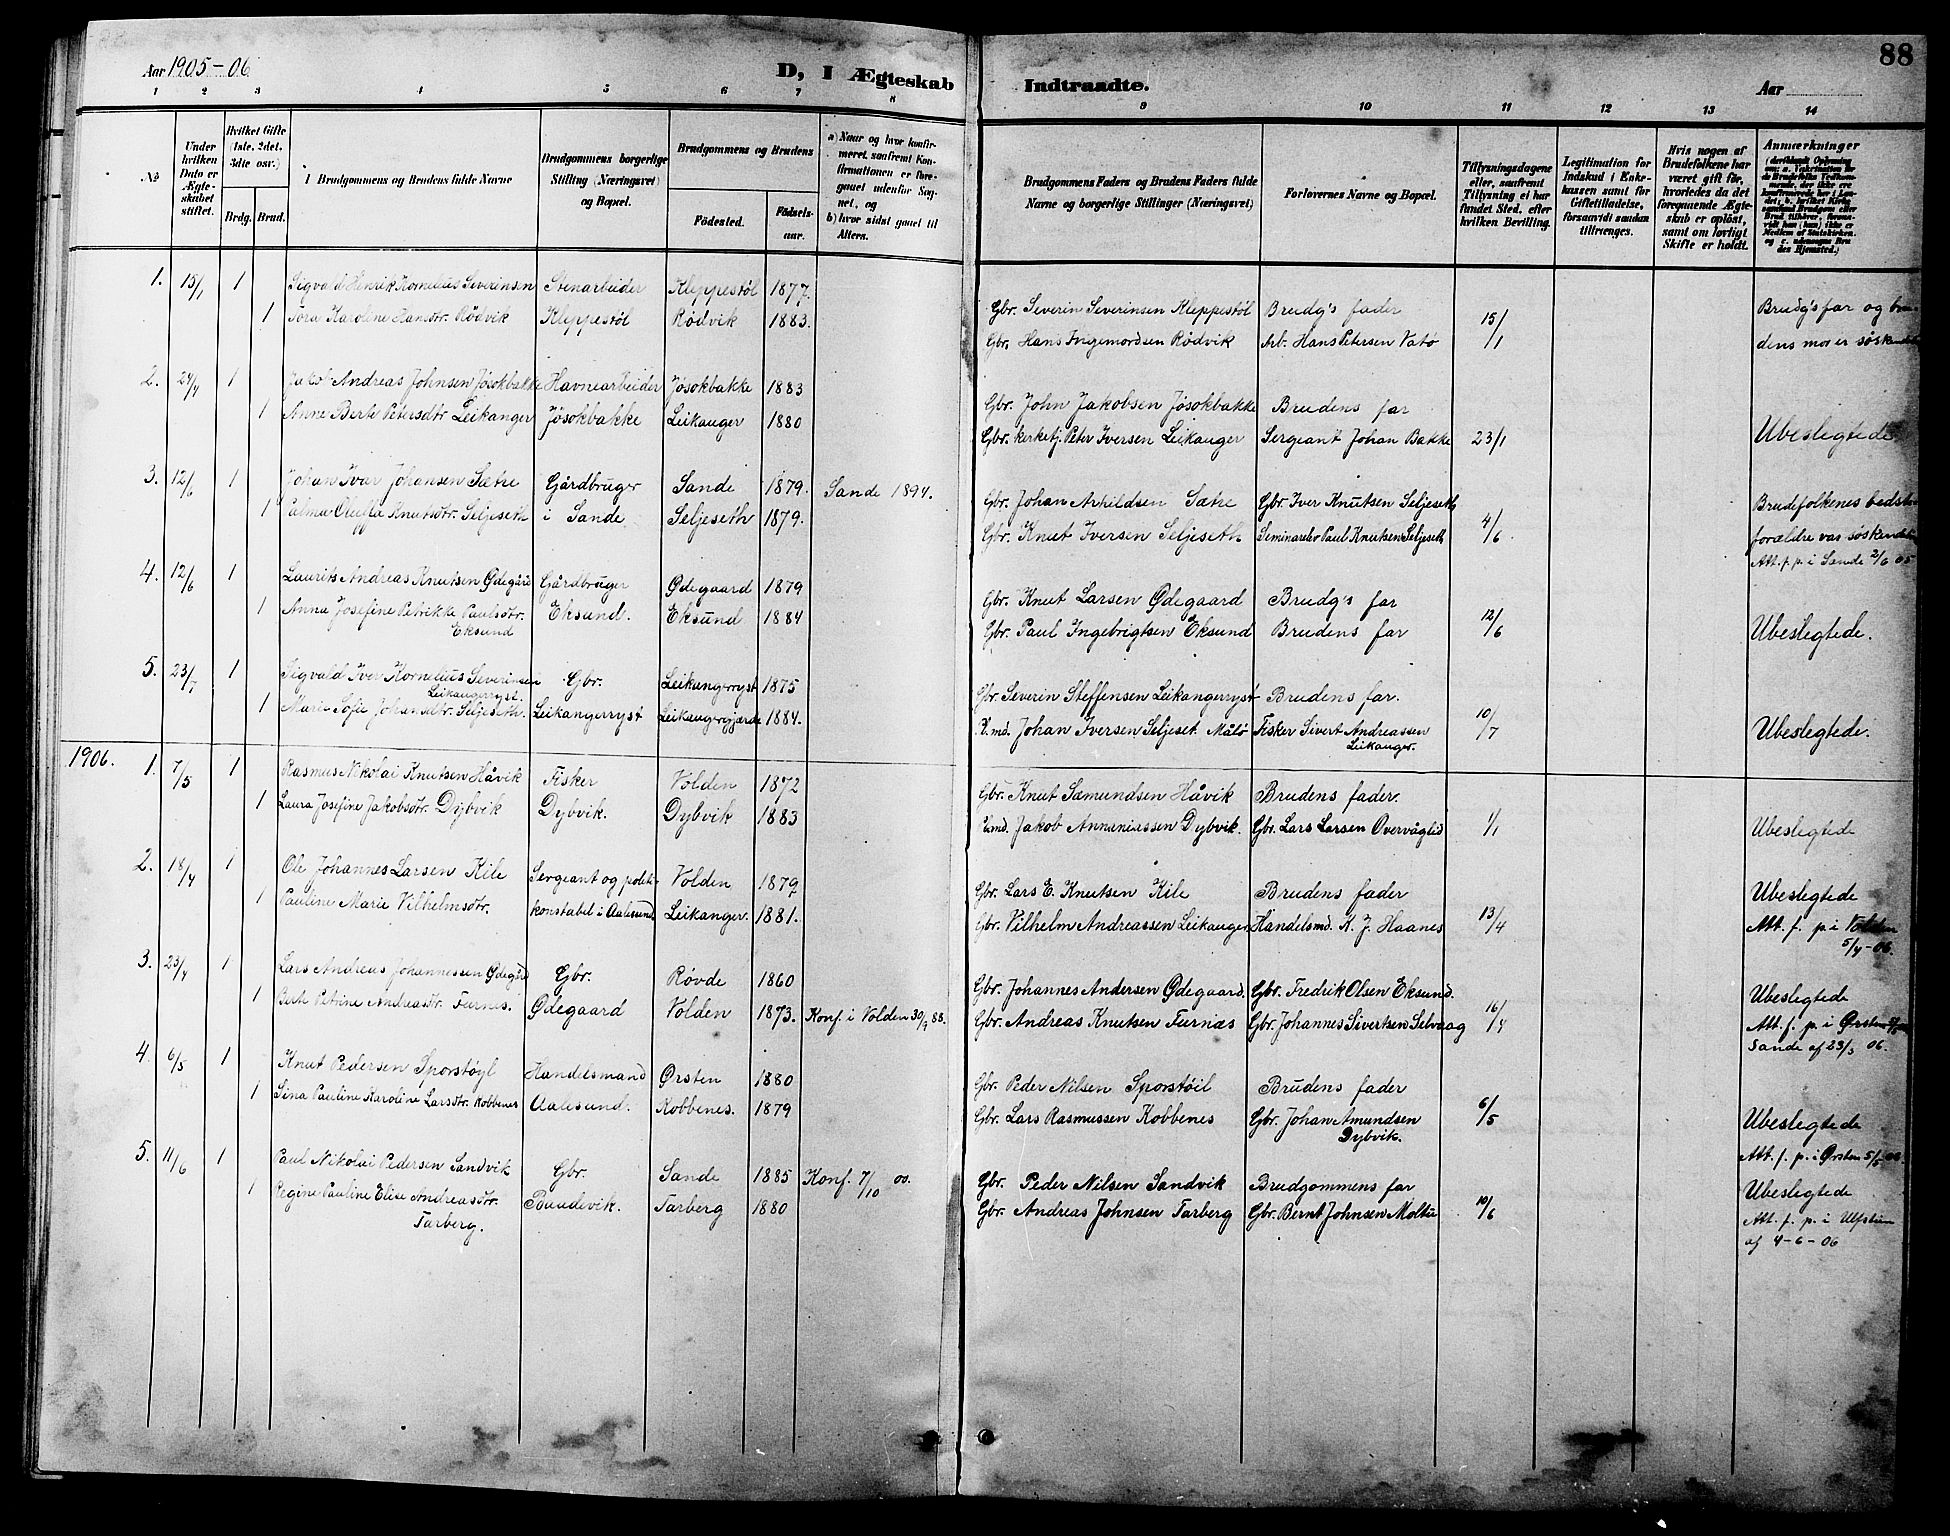 Aar 1905-06
D, I Ægteskab
Indtraadte.
Aar
88
1 2 3 4 5 6 7 8 9 10 11 12 13 14
No
Under hvilken Dato er Ægteskabet stiftet.
Hvilket Gifte (1ste, 2det, 3dte osv.)
Brdg. Brud.
Brudgommens og Brudens fulde Navne
Brudgommens borgerlige Stilling (Næringsvei) og Bopæl.
Brudgommens og Brudens
Fødested.
Fødselsaar.
a) Naar og hvor konfirmeret saafremt Konfirmationen er foregaaet udenfor Sognet, og
b) hvor sidst gaaet til Alters.
Brudgommens Faders og Brudens Faders fulde Navne og borgerlige Stillinger (Næringsvei)
Forlovernes Navne og Bopæl.
Tillysningsdagene eller, saafremt Tillysning ei har fundet Sted, efter hvilken Bevilling.
Legitimation for Indskud i Enkekassen samt for Giftetilladelse, forsaavidt saadan tiltrænges.
Hvis nogen af Brudefolkene har været gift før, hvorledes da det foregaaende Ægteskab er opløst, samt om lovligt Skifte er holdt.
Anmærkninger
1. 15/1 1 Sigvald Henrik Kornelius Severinsen Stenarbeider Kleppestöl 1877. Gbr. Severin Severinsen Kleppestöl Brudg's fader 15/1 Brudg's far og bru-
1 Tora Karoline Hansdtr. Rødvik Kleppestöl Rødvik 1883. Gbr. Hans Ingemordsen Rødvik Arb. Hans Petersen Vatø dens mor er søskende
2. 24/4 1 Jakob Andreas Johnsen Jøsokbakke Havnearbeider Jøsokbakke 1883 Gbr. John Jakobsen Jøsokbakke Brudens far
1 Anne Berte Petersdtr Leikanger Jøsokbakke Leikanger 1880 Gbr. kerketj. Peter Iversen Leikanger Sergeant Johan Bakke 23/1 Ubeslegtede.
3. 12/6 1 Johan Ivar Johansen Sætre Gårdbruger Sande 1879. Sande 1894. Gbr. Johan Arhildsen Sætre Gbr. Iver Knutsen Seljeseth 4/6 Brudefolkenes bedste-
1 Palma Oluffa Knutsdtr. Seljeseth i Sande Seljeseth 1879. Gbr. Knut Iversen Seljeseth Seminarelev Paul Knutsen Seljeseth forældre var søskende
Att. f. p. i Sande 2/6 05
4. 12/6 1 Laurits Andreas Knutsen Ødegård Gårdbruger Ødegaard 1879 Gbr. Knut Larsen Ødegaard Brudg's far
1 Anna Josefine Petrikke Paulsdtr. Eksund Eksund. Eksund 1884 Gbr. Paul Ingebrigtsen Eksund Brudens far 12/6 Ubeslegtede.
5. 23/7 1 Sigvald Iver Kornelius Severinsen Leikangerryst. Gbr. Leikangerryst 1875 Gbr. Severin Steffensen Leikangerryst Brudens far.
1 Marie Sofie Johansdtr. Seljeseth. Leikangerryst Leikangergjærde 1884. Johan Iversen Seljeset Målø Fisker Sivert Andreassen Leikanger. 10/7 Ubeslegtede.
1906. 1. 7/5 1 Rasmus Nikolai Knutsen Håvik Fisker Volden 1872 Gbr. Knut Sæmundsen Håvik Brudens fader.
1 Laura Josefine Jakobsdtr. Dybvik Dybvik. Dybvik 1883 Jakob Annaniassen Dybvik. Gbr. Lars Larsen Overvåglid 1/1 Ubeslegtede
2. 18/4 1 Ole Johannes Larsen Kile Sergeant og politi- Volden 1879 Gbr. Lars E. Knutsen Kile Brudens fader Ubeslegtede
1 Pauline Marie Vilhelmsdtr. konstabel i Aalesund Leikanger. 1881. Gbr. Vilhelm Andreassen Leikanger Handelsmd. K. J. Haanes 13/4 Att. f. p. i Volden
5/4-06.
3. 23/4 1 Lars Andreas Johannessen Ødegård Gbr. Røvde 1860 Gbr. Johannes Andersen Ødegaard. Gbr. Fredrik Olsen Eksund. Ubeslegtede
1 Berte Petrine Andreasdtr. Furnes. Ødegaard Volden 1873. Konf. i Volden 30/9 88. Gbr. Andreas Knutsen Furnæs Gbr. Johannes Sivertsen Selvaag 16/4 Att. f. p. i Ørsten
Sande af 23/3 06.
4. 6/5 1 Knut Pedersen Sporstøyl Handelsmand Ørsten 1880 Gbr. Peder Nilsen Sporstøil Brudens fader
1 Sina Pauline Karoline Larsdtr. Kobbenes Aalesund. Kobbenes. 1879 Gbr. Lars Rasmussen Kobbenes Gbr. Johan Amundsen Dybvik. 6/5 Ubeslegtede
Att. f. p. i Ørsten 5/5 06.
5. 11/6 1 Paul Nikolai Pedersen Sandvik Gbr. Sande 1885 Konf. 7/10 00. Gbr. Peder Nilsen Sandvik Brudgommens far Ubeslegtede
1 Regine Pauline Elise Andreasdtr. Tarberg. Tarberg 1880 Gbr. Andreas Johnsen Tarberg Gbr. Bernt Johnsen Moltu 10/6 Att. f. p. i Ulfsten
af 4-6-06